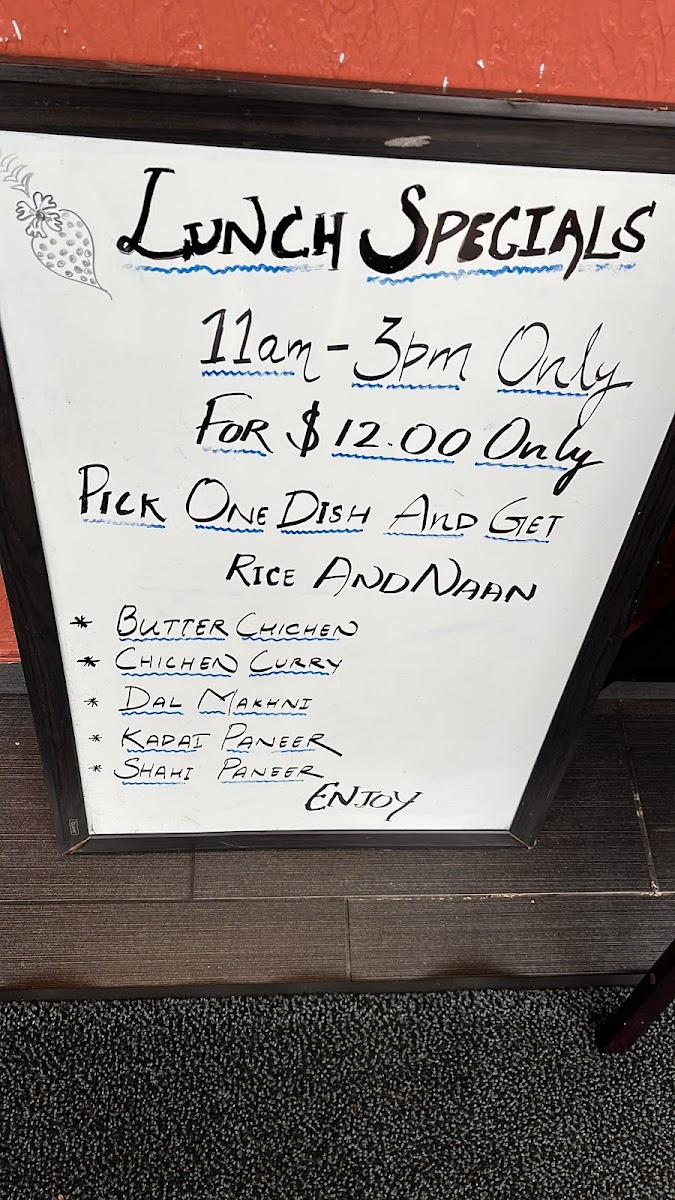 LUNCH SPECIALS
11am-3pm Only
FOR $12.00 Only
PICK ONE DISH AND GET
RICE AND NAAN
* BUTTER CHICHEN
* CHICHEN CURRY
* DAL MAKHNI
* KADAI PANEER
* SHAHI PANEER
ENJOY